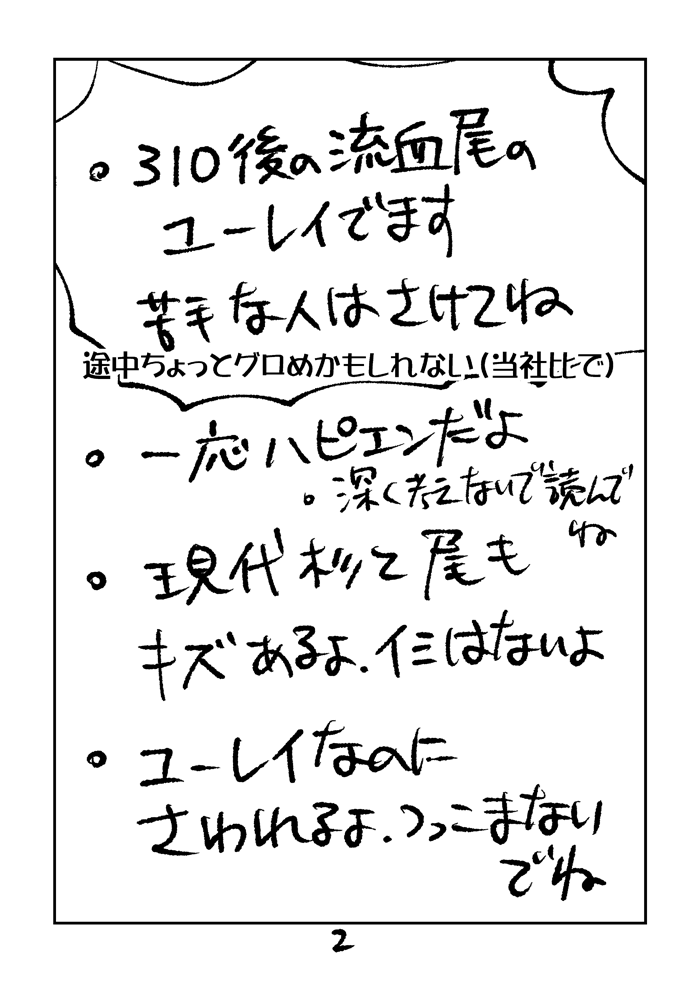 • 310後の流血尾の
ユーレイでます
苦手な人はさけてね
途中ちょっとグロめかもしれない(当社比で)
• 一応ハピエンだよ
• 深く考えないで読んで
ね
• 現代杉と尾も
キズあるよ.イミはないよ
• ユーレイなのに
さわれるよ.つっこまない
でね
2